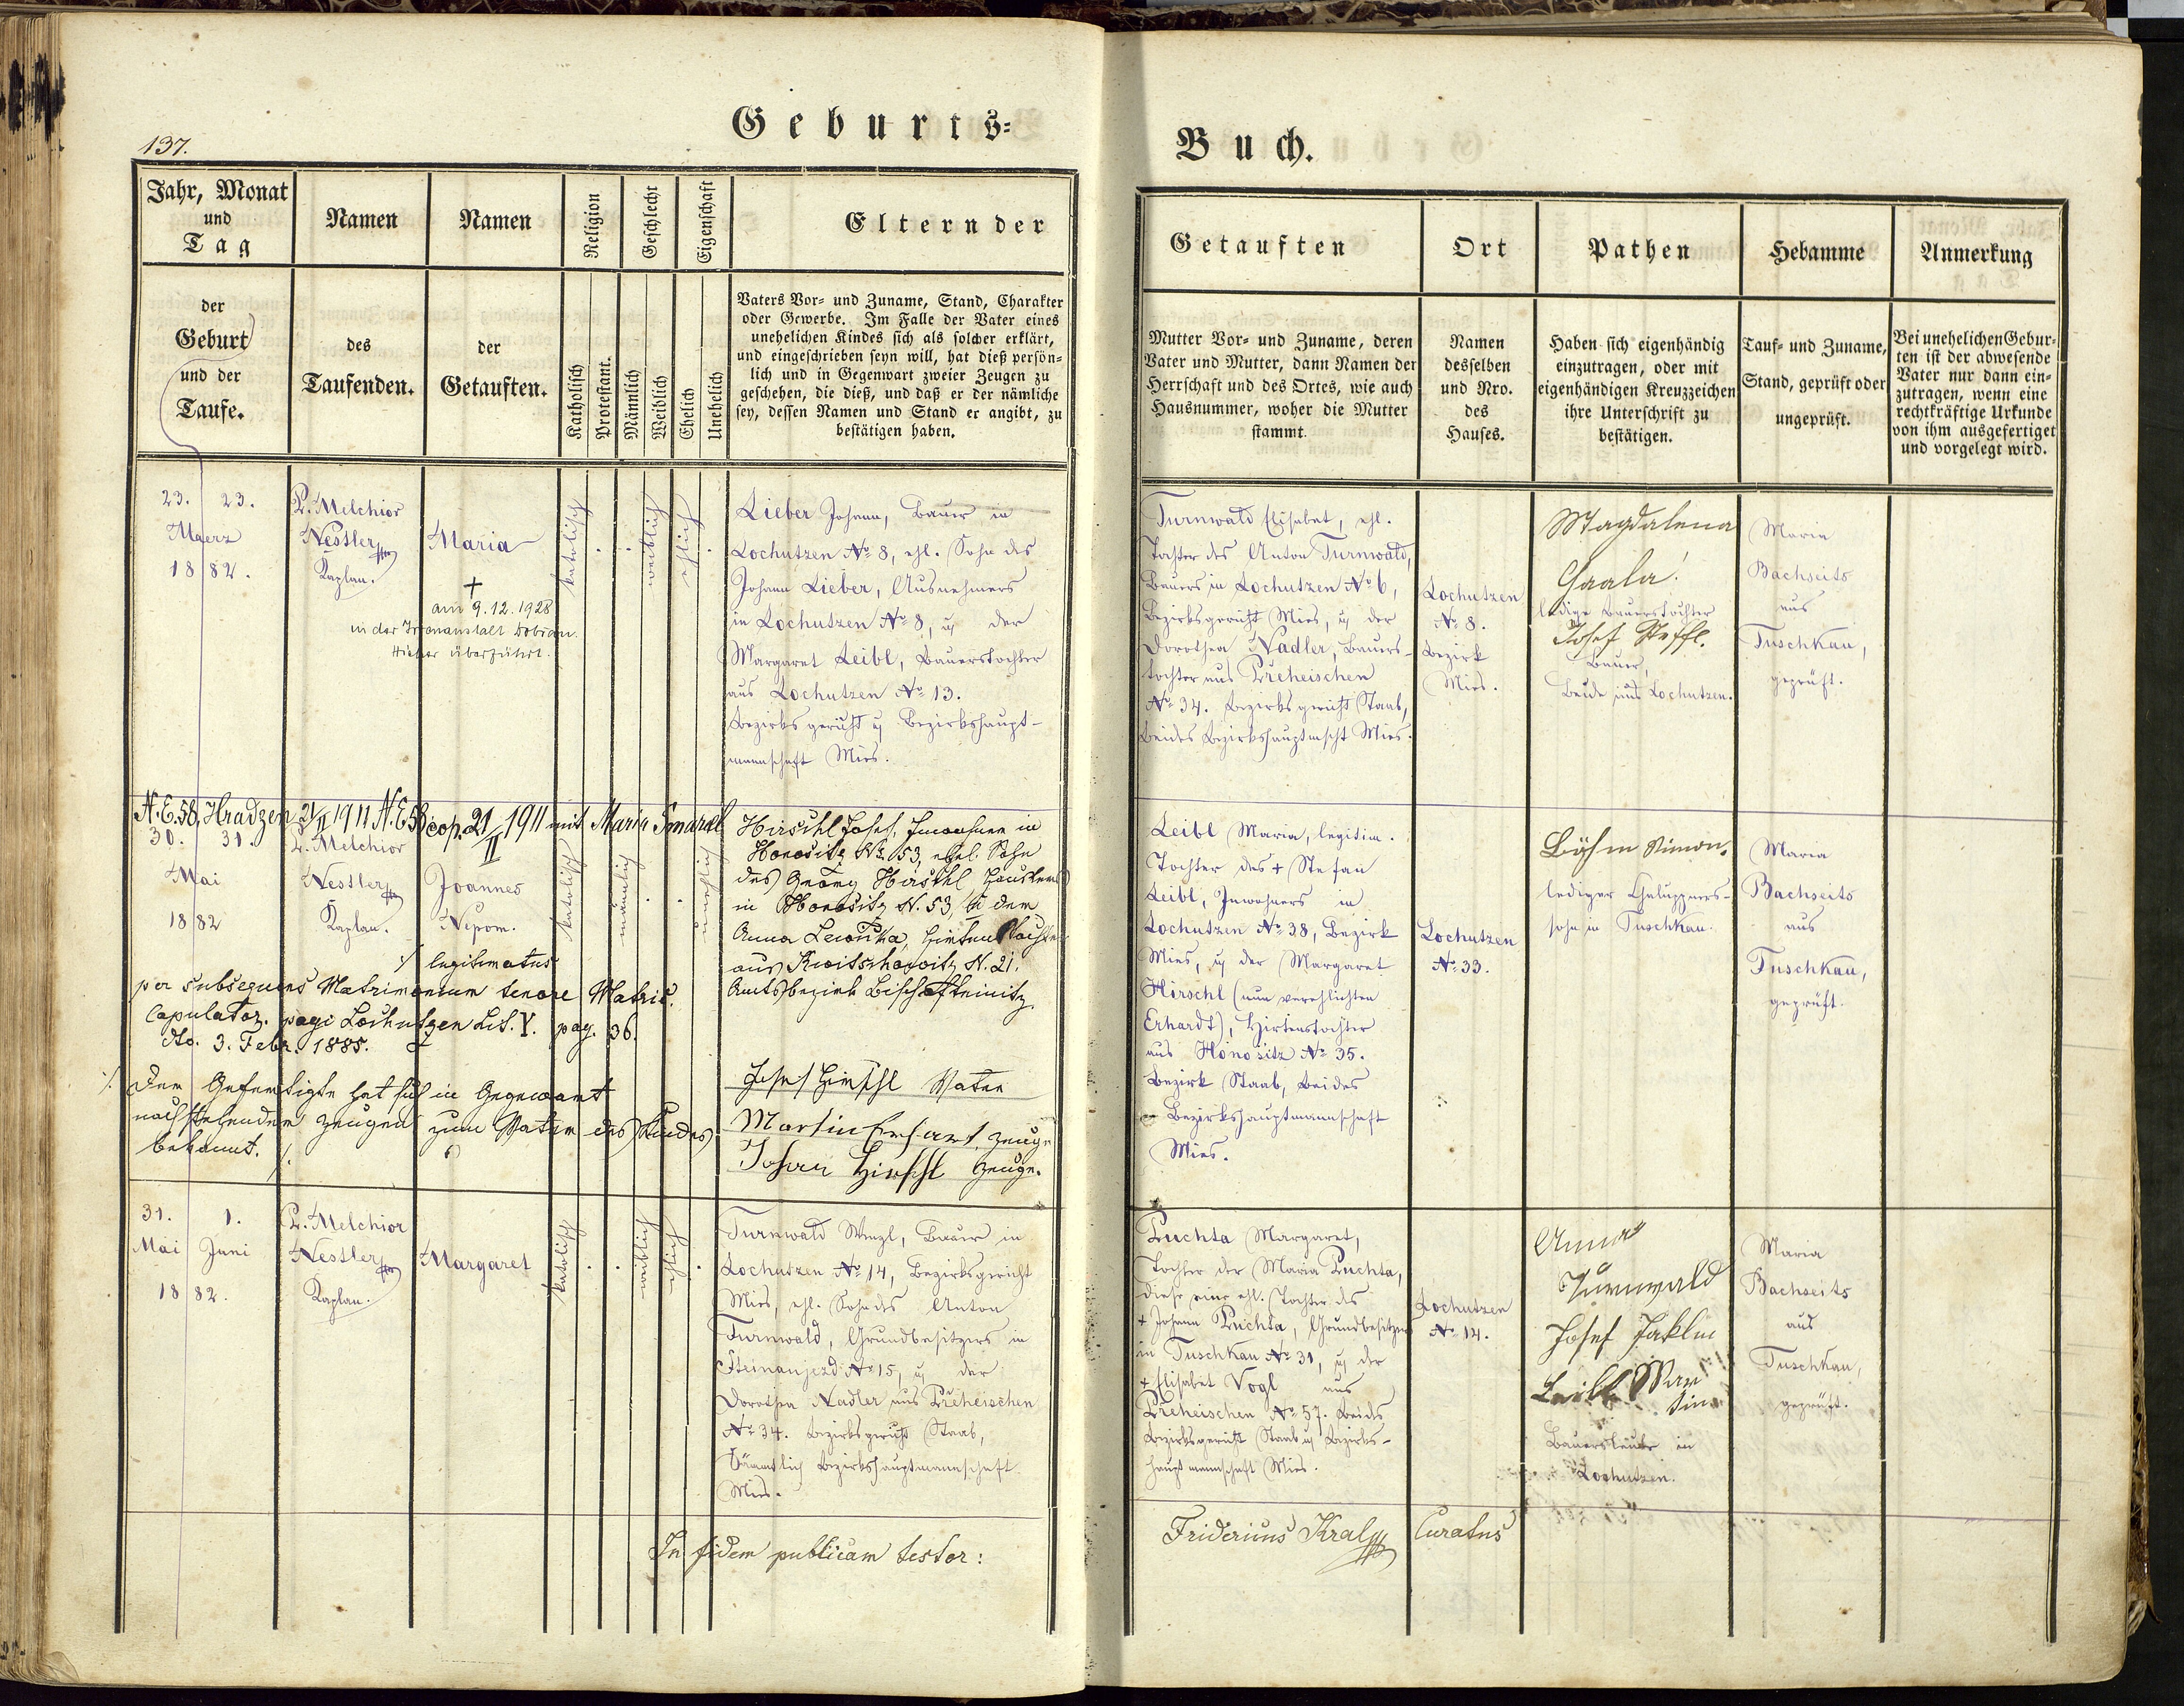 137.
Geburts=
Buch.
Jahr, Monat
und
Tag
der
Geburt
und der
Taufe.
Namen
des
Taufenden.
Namen
der
Getauften.
Religion
Katholisch
Protestant.
Geschlecht
Männlich
Weiblich
Eigenschaft
Ehelich
Unehelich
Eltern der
Vaters Vor= und Zuname, Stand, Charakter
oder Gewerbe. Im Falle der Vater eines
unehelichen Kindes sich als solcher erklärt,
und eingeschrieben seyn will, hat dieß persön-
lich und in Gegenwart zweier Zeugen zu
geschehen, die dieß, und daß er der nämliche
sey, dessen Namen und Stand er angibt, zu
bestätigen haben.
Getauften
Mutter Vor= und Zuname, deren
Vater und Mutter, dann Namen der
Herrschaft und des Ortes, wie auch
Hausnummer, woher die Mutter
stammt.
Ort
Namen
desselben
und Nro.
des
Hauses.
Pathen
Haben sich eigenhändig
einzutragen, oder mit
eigenhändigen Kreuzzeichen
ihre Unterschrift zu
bestätigen.
Hebamme
Tauf= und Zuname,
Stand, geprüft oder
ungeprüft.
Anmerkung
Bei unehelichen Gebur-
ten ist der abwesende
Vater nur dann ein-
zutragen, wenn eine
rechtkräftige Urkunde
von ihm ausgefertiget
und vorgelegt wird.
23. 23.
Maerz
1882.
P. Melchior
Nestler
Kaplan.
Maria
+
am 9.12.1928
in der Irrenanstalt Dobřan.
Hieher überführt.
katolisch
weiblich
ehlich
Lieber Johann, Bauer in
Lochutzen No 8, ehl. Sohn des
Johann Lieber, Ausnehmers
in Lochutzen No 8, u der
Margaret Leibl, Bauerstochter
aus Lochutzen No 13.
Bezirksgericht u Bezirkshaupt-
mannschaft Mies.
Turnwald Elisabet, ehl.
Tochter des Anton Turnwald,
Bauers in Lochutzen No 6,
Bezirksgericht Mies, u der
Dorothea Nadler, Bauers-
tochter aus Preheischen
No 34. Bezirksgericht Staab,
beides Bezirkshauptmscht Mies.
Lochutzen
No 8.
Bezirk
Mies.
Magdalena
Gaala
ledige Bauerstochter
Josef Steffl.
Bauer,
beide aus Lochutzen.
Maria
Bachseits
aus
Tuschkau,
geprüft.
N.E.58, Hradzen 21/II 1911 N.E.58 cop. 21/II 1911 mit Maria
30. 31.
Mai
1882
P. Melchior
Nestler
Kaplan.
Joannes
Nepom.
katolisch
männlich
unehlich
Hirschl Josef, Inwohner in
Honositz No. 53, ehel. Sohn
des Georg Hirschl, Häuslers
in Honositz N. 53, u der
Anna, Hirtenstochter
aus N. 21.
Amtsbezirk Bischofteinitz
·/. legitimatus
per subsequens Matrimonium tenore Matric.
Copulator. pagi Lochutzen Lit. Y. pag. 36.
dto. 3. Febr. 1885.
·/. Der Gefertigte hat sich in Gegenwart
nachstehender Zeugen zum Vater des Kindes
bekannt. ·/.
Josef Hirschl Vater
Martin Erhart, Zeuge
Johan Hirschl Zeuge.
Leibl Maria, legitim.
Tochter des + Stefan
Leibl, Inwohners in
Lochutzen No 38, Bezirk
Mies, u der Margaret
Hirschl (nun verehlichten
Erhardt), Hirtenstochter
aus Honositz No 35.
Bezirk Staab, beides
Bezirkshauptmannschaft
Mies.
Lochutzen
No 33.
Böhm Simon.
lediger Chaluppners-
sohn in Tuschkau.
Maria
Bachseits
aus
Tuschkau,
geprüft.
31. 1.
Mai Juni
1882.
P. Melchior
Nestler
Kaplan.
Margaret
katolisch
weiblich
ehlich
Turnwald Wenzl, Bauer in
Lochutzen No 14, Bezirksgericht
Mies, ehl. Sohn des Anton
Turnwald, Grundbesitzers in
Steinanjezd No 15, u der
Dorothea Nadler aus Preheischen
No 34. Bezirksgericht Staab,
Sämmtlich Bezirkshauptmannschaft
Mies.
Puchta Margaret,
Tochter der Maria Puchta,
diese eine ehl. Tochter des
+ Johann Puchta, Grundbesitzers
in Tuschkau No 31, u der
+ Elisabet Vogl aus
Preheischen No 57. beides
Bezirksgericht Staab u Bezirks-
hauptmannschaft Mies.
Lochutzen
No 14.
Anna
Turnwald
Josef Jaklin
Leibl Mar
tin
Bauersleute in
Lochutzen.
Maria
Bachseits
aus
Tuschkau,
geprüft.
In fidem publicam testor:
Fridericus Kral Curatus